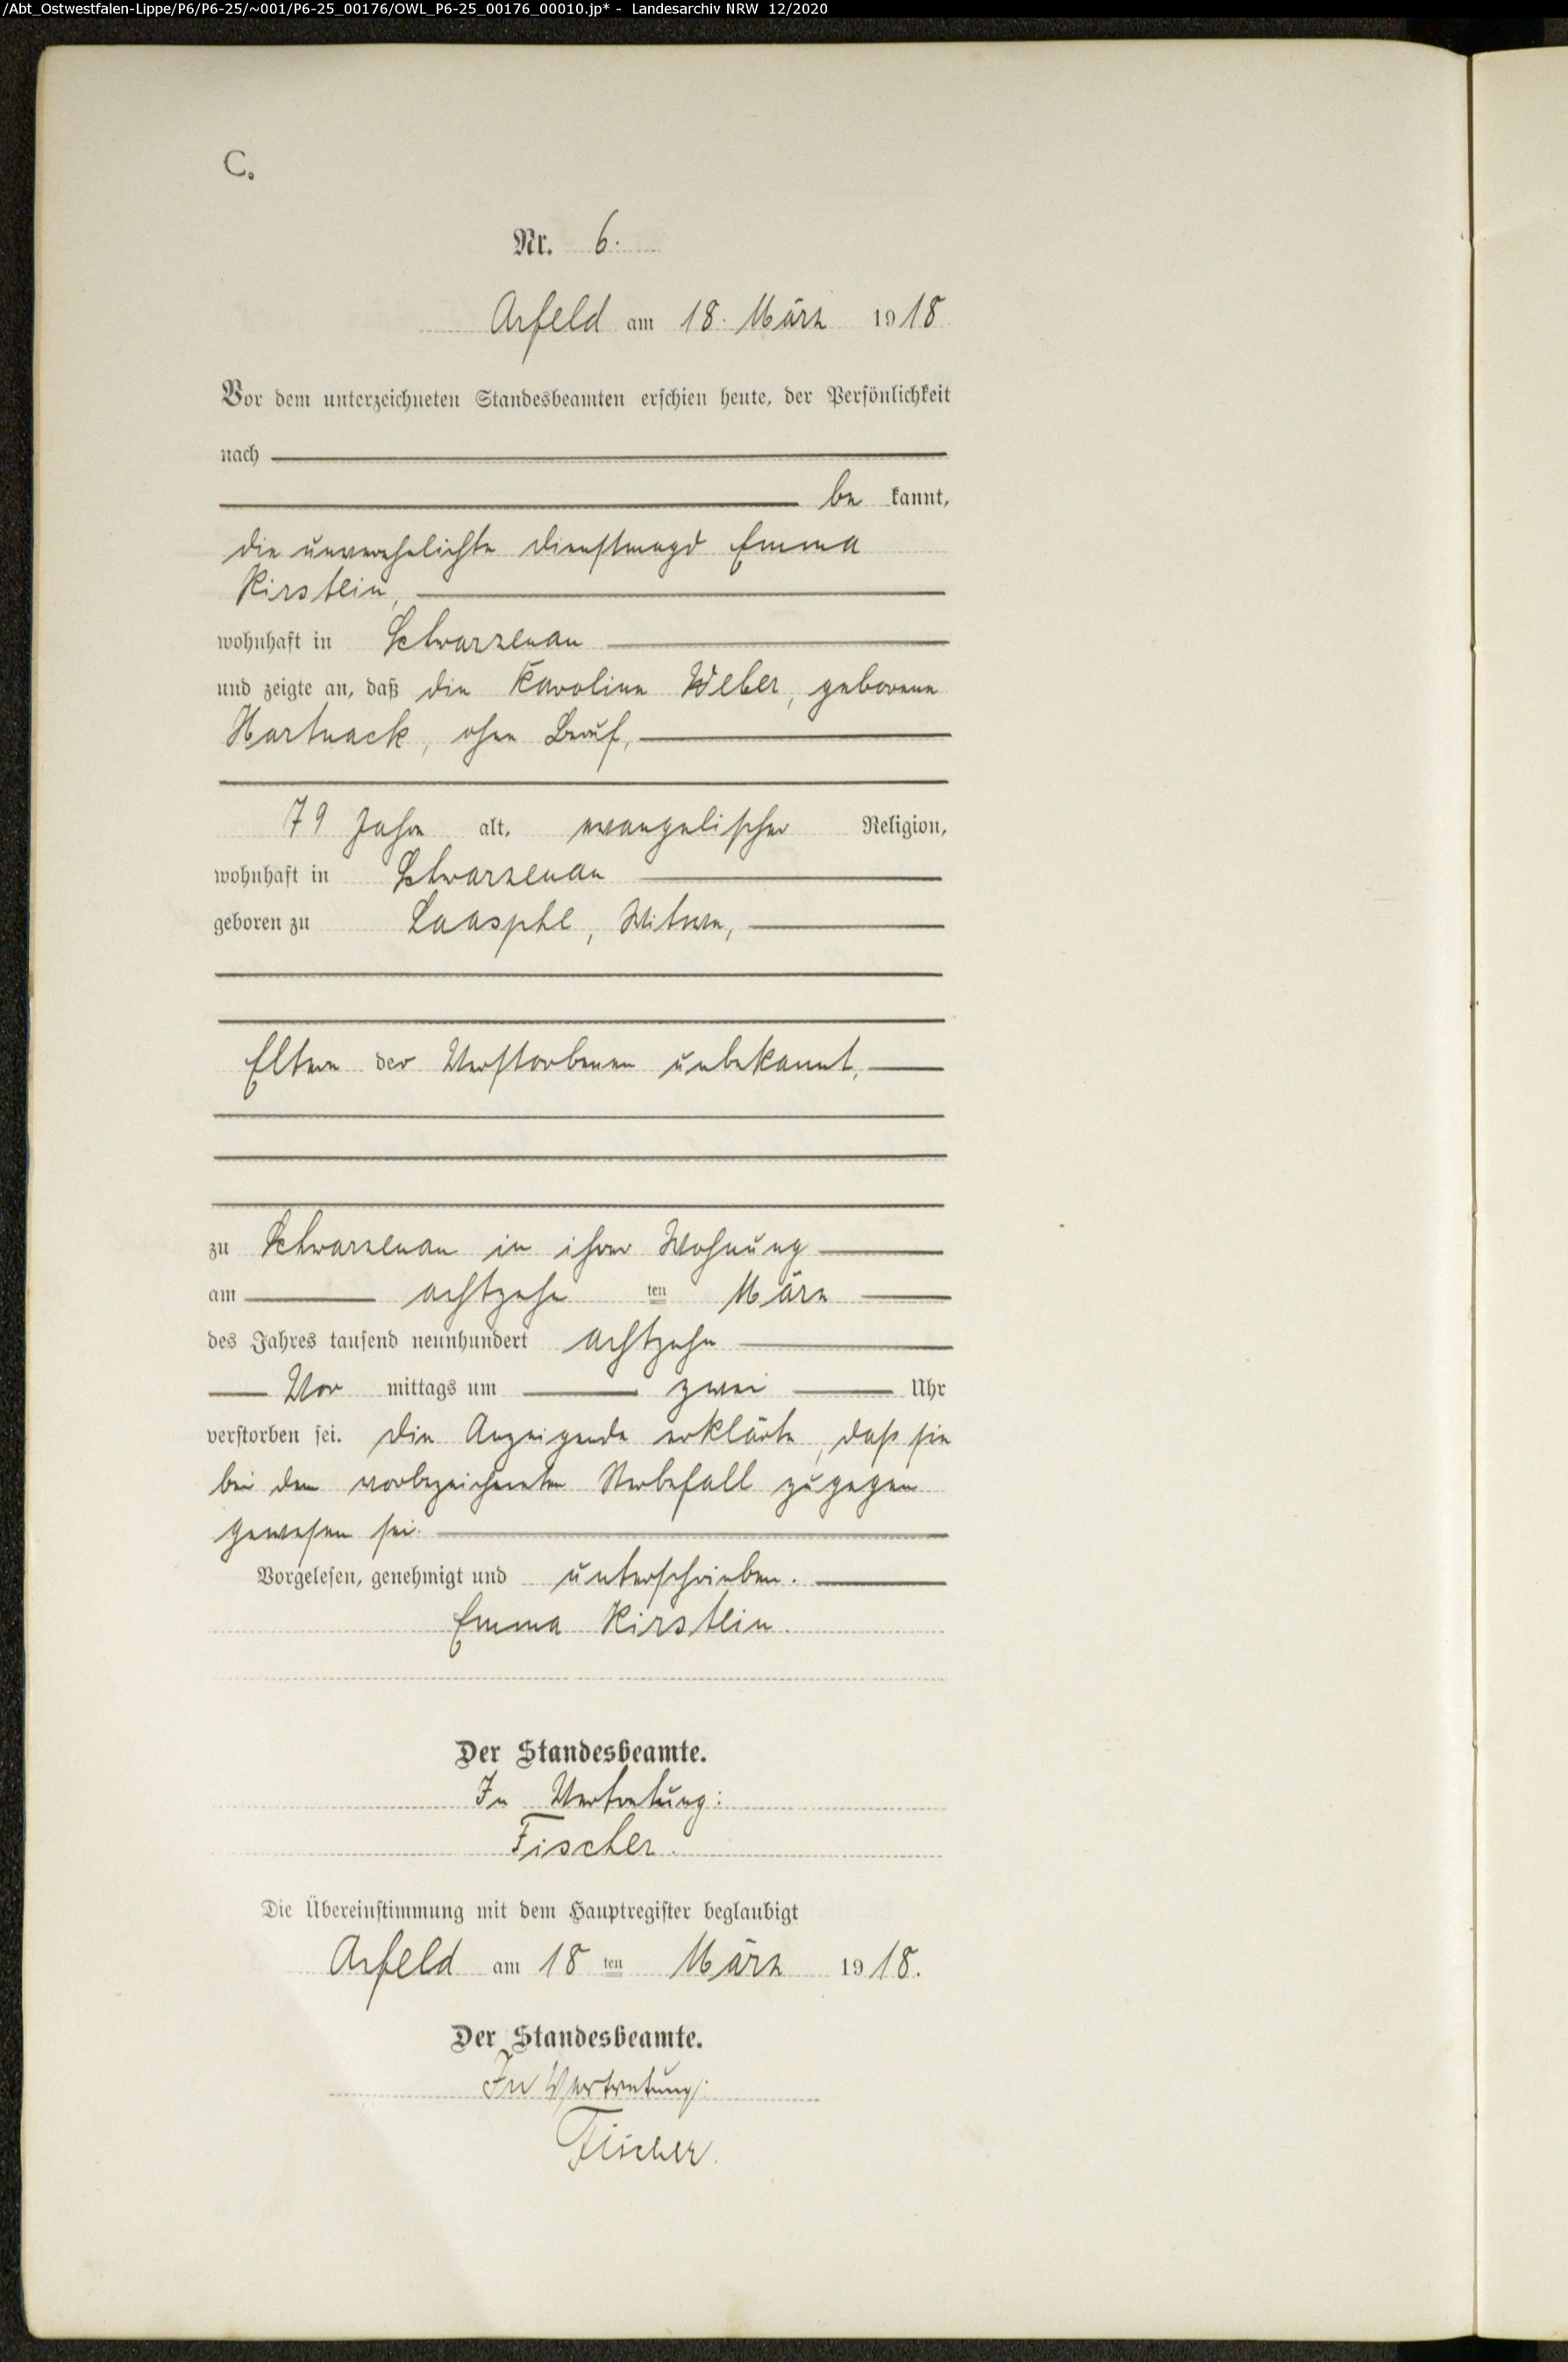 /Abt_Ostwestfalen-Lippe/P6/P6-25/~001/P6-25_00176/OWL_P6-25_00176_00010.jp* - Landesarchiv NRW 12/2020
C.
Nr. 6.
Arfeld am 18. März 1918
Vor dem unterzeichneten Standesbeamten erschien heute, der Persönlichkeit
nach
be kannt,
die unverehelichte Dienstmagd Emma
Kirstein,
wohnhaft in Schwarzenau
und zeigte an, daß die Karoline Weber, geborene
Hartnack, ohne Beruf,
79 Jahre alt, evangelischer Religion,
wohnhaft in Schwarzenau
geboren zu Laasphe, Witwe,
Eltern der Verstorbenen unbekannt,
zu Schwarzenau in ihrer Wohnung
am achtzehn ten März
des Jahres tausend neunhundert achtzehn
Vor mittags um zwei Uhr
verstorben sei. Die Anzeigende erklärte, daß sie
bei dem vorbezeichneten Sterbefall zugegen
gewesen sei.
Vorgelesen, genehmigt und unterschrieben.
Emma Kirstein.
Der Standesbeamte.
In Vertretung:
Fischer.
Die Übereinstimmung mit dem Hauptregister beglaubigt
Arfeld am 18 ten März 1918.
Der Standesbeamte.
In Vertretung:
Fischer.